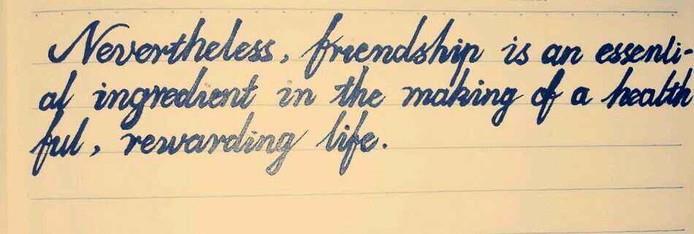 Nevertheless, friendship is an essenti-
al ingredient in the making of a health
ful, rewarding life.